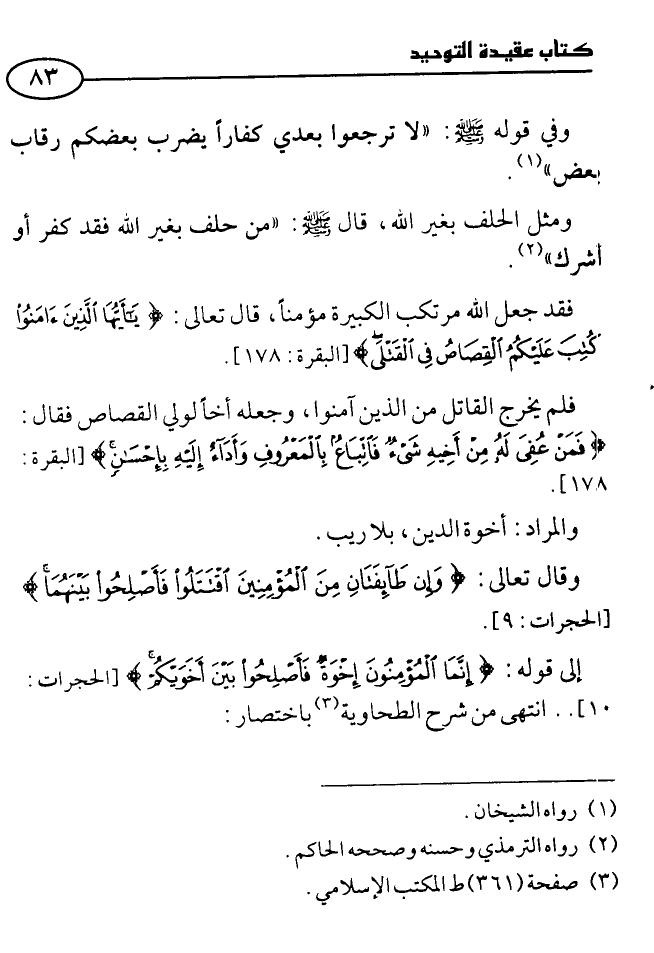 كتاب عقيدة التوحيد
٨٣
وفي قوله ﷺ : «لا ترجعوا بعدي كفاراً يضرب بعضكم رقاب
بعض»(١) .
ومثل الحلف بغير الله ، قال ﷺ : «من حلف بغير الله فقد كفر أو
أشرك»(٢) .
فقد جعل الله مرتكب الكبيرة مؤمناً ، قال تعالى : ﴿ يَٰٓأَيُّهَا ٱلَّذِينَ ءَامَنُوا۟
كُتِبَ عَلَيْكُمُ ٱلْقِصَاصُ فِى ٱلْقَتْلَىۖ ﴾ [البقرة : ١٧٨] .
فلم يخرج القاتل من الذين آمنوا ، وجعله أخاً لولي القصاص فقال :
﴿ فَمَنْ عُفِىَ لَهُۥ مِنْ أَخِيهِ شَىْءٌ فَٱتِّبَاعٌۢ بِٱلْمَعْرُوفِ وَأَدَآءٌ إِلَيْهِ بِإِحْسَٰنٍۗ ﴾ [البقرة :
١٧٨] .
والمراد : أخوة الدين ، بلا ريب .
وقال تعالى : ﴿ وَإِن طَآئِفَتَانِ مِنَ ٱلْمُؤْمِنِينَ ٱقْتَتَلُوا۟ فَأَصْلِحُوا۟ بَيْنَهُمَاۖ ﴾
[الحجرات : ٩] .
إلى قوله : ﴿ إِنَّمَا ٱلْمُؤْمِنُونَ إِخْوَةٌ فَأَصْلِحُوا۟ بَيْنَ أَخَوَيْكُمْۚ ﴾ [الحجرات :
١٠] . . انتهى من شرح الطحاوية(٣) باختصار :
(١) رواه الشيخان .
(٢) رواه الترمذي وحسنه وصححه الحاكم .
(٣) صفحة (٣٦١) ط المكتب الإسلامي .